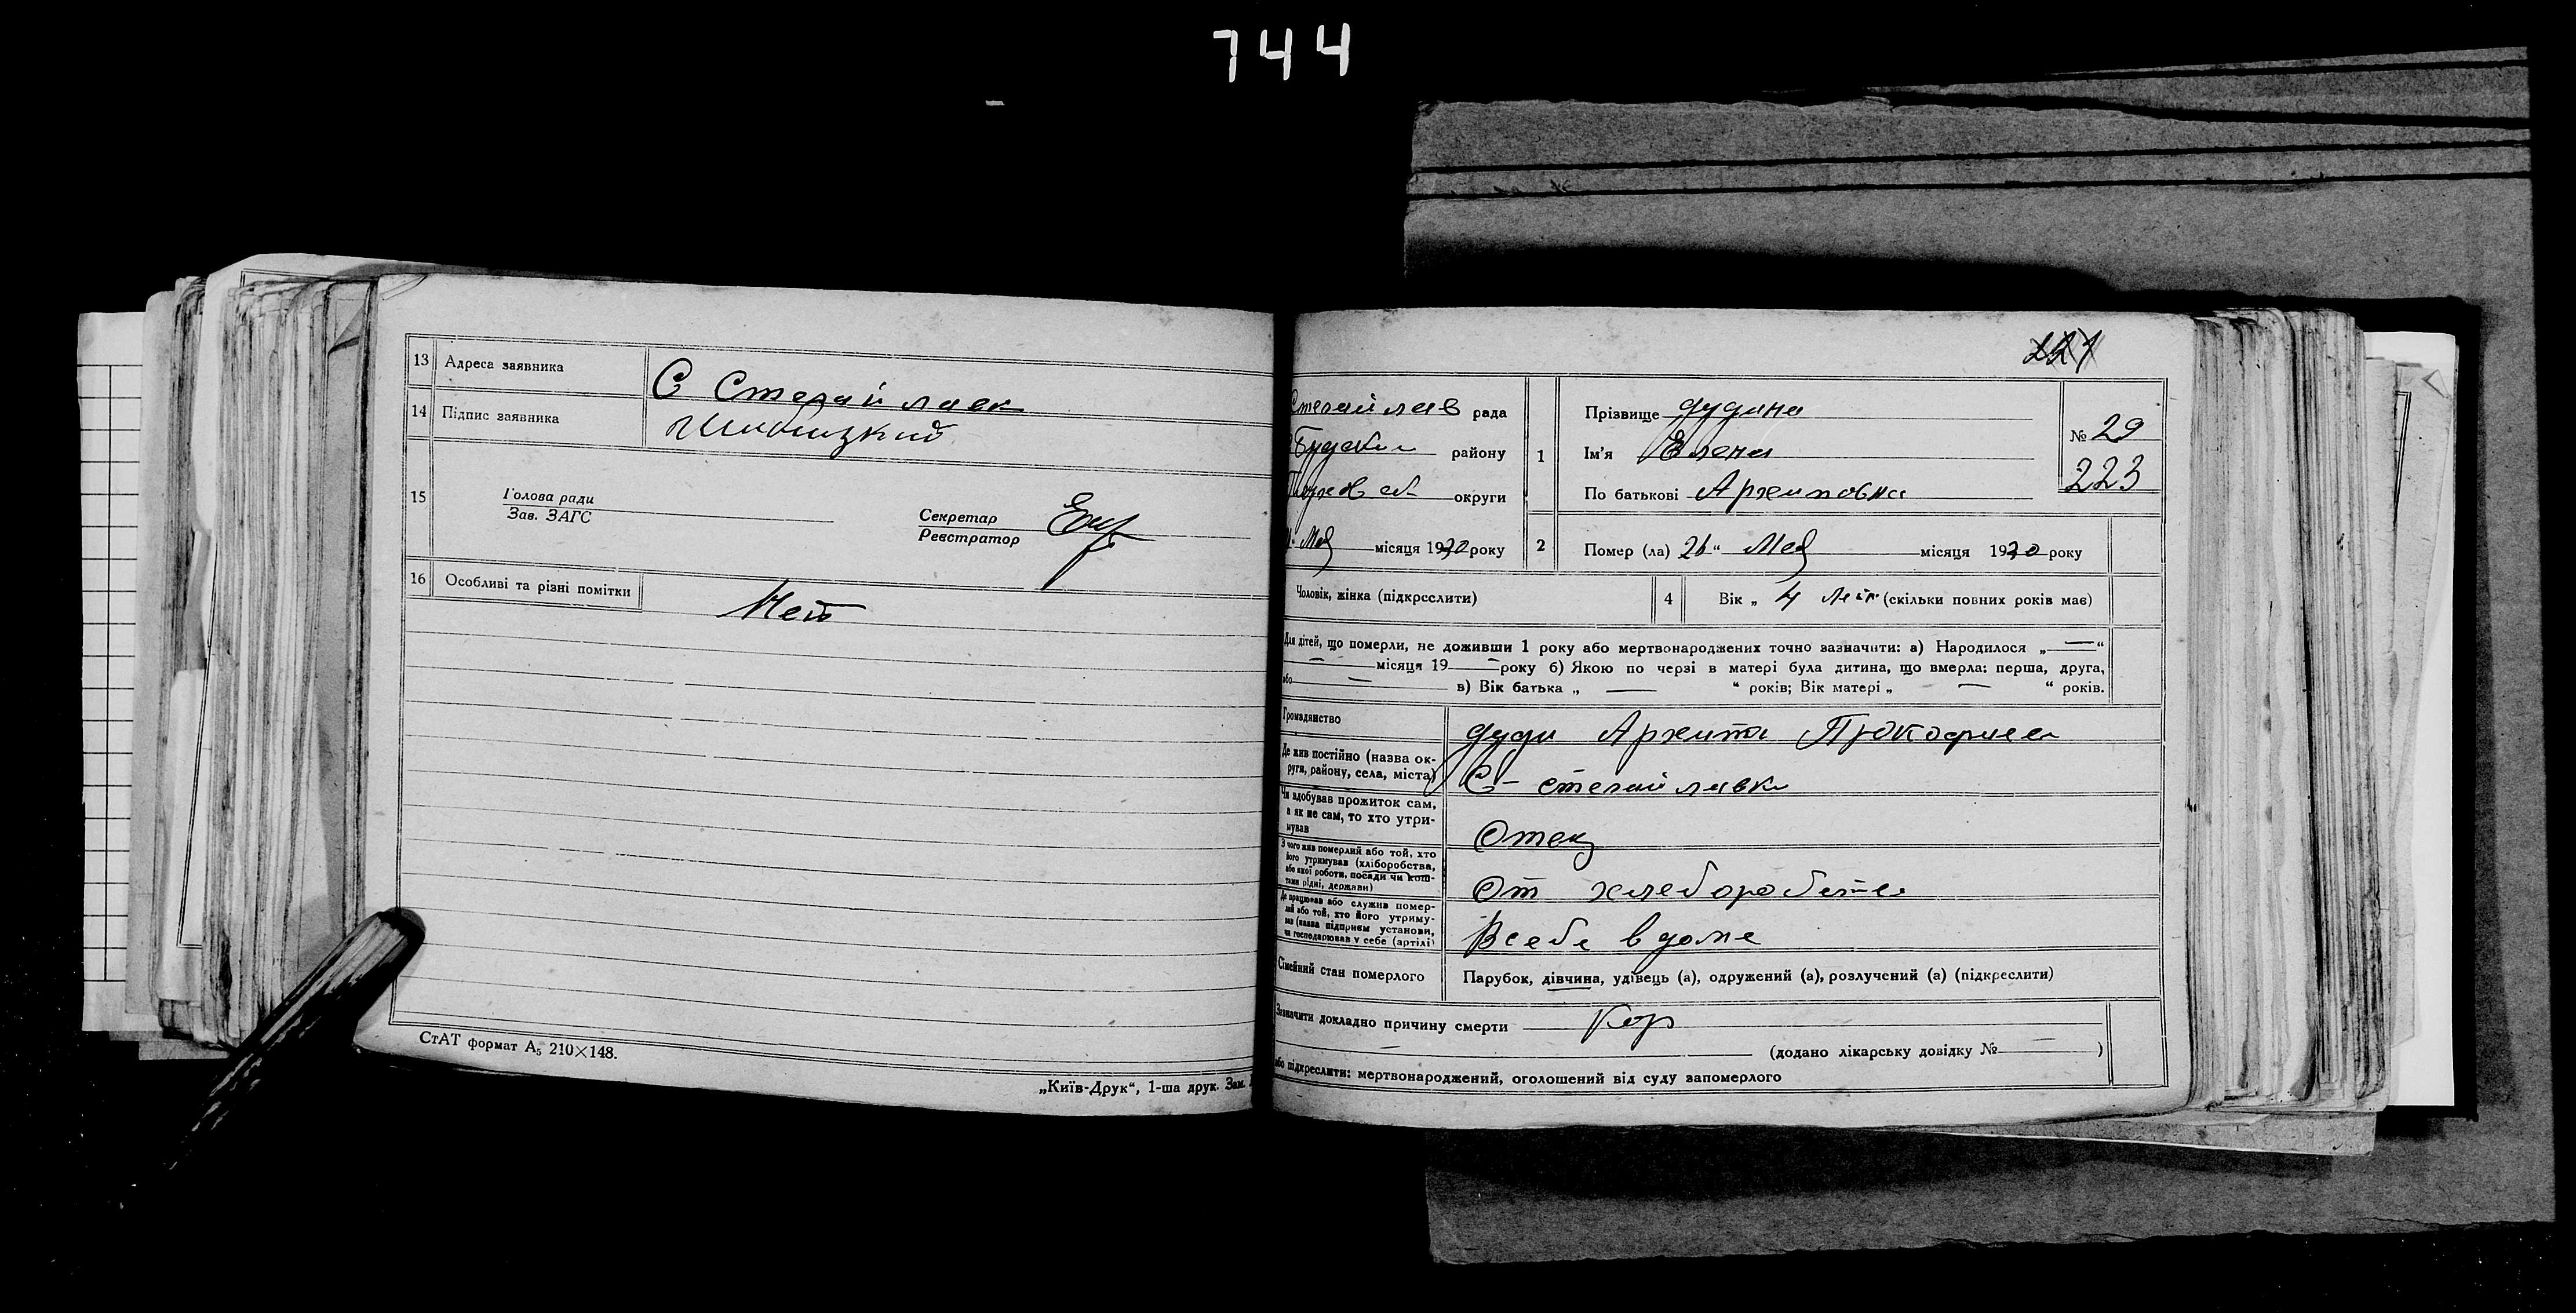 744
13 Адреса заявника С Стегайловк
14 Підпис заявника
15 Голова ради
Зав. ЗАГС
Секретар
Реєстратор
16 Особливі та різні помітки Нет
СтАТ формат А₅ 210×148.
„Київ-Друк“, 1-ша друк. Зам.
221
рада
району
округи
Мая місяця 1930 року
1 Прізвище Дудина
Ім'я Елена
По батькові Архиповна
№ 29
223
2 Помер (ла) 26 “ Мая місяця 1930 року
Чоловік, жінка (підкреслити)
4 Вік „ 4 Лет (скільки повних років має)
Для дітей, що померли, не доживши 1 року або мертвонароджених точно зазначити: а) Народилося „—“
— місяця 19 — року б) Якою по черзі в матері була дитина, що вмерла: перша, друга,
або — в) Вік батька „ — “ років; Вік матері „ — “ років.
Громадянство Дуди Архипа Прокофиев
Де жив постійно (назва ок-
руги, району, села, міста)
С-
Чи здобував прожиток сам,
а як не сам, то хто утри-
мував
Отец
З чого жив померлий або той, хто
його утримував (хліборобства,
або якої роботи, посади чи кош-
тами рідні, держави)
От хлеборобства
Де працював або служив помер-
лий або той, хто його утриму-
вав (назва підприєм установи,
чи господарював у себе (артілі)
В себе в доме
Сімейний стан померлого Парубок, дівчина, удівець (а), одружений (а), розлучений (а) (підкреслити)
Зазначити докладно причину смерти Кор
— (додано лікарську довідку № — )
або підкреслити: мертвонароджений, оголошений від суду запомерлого